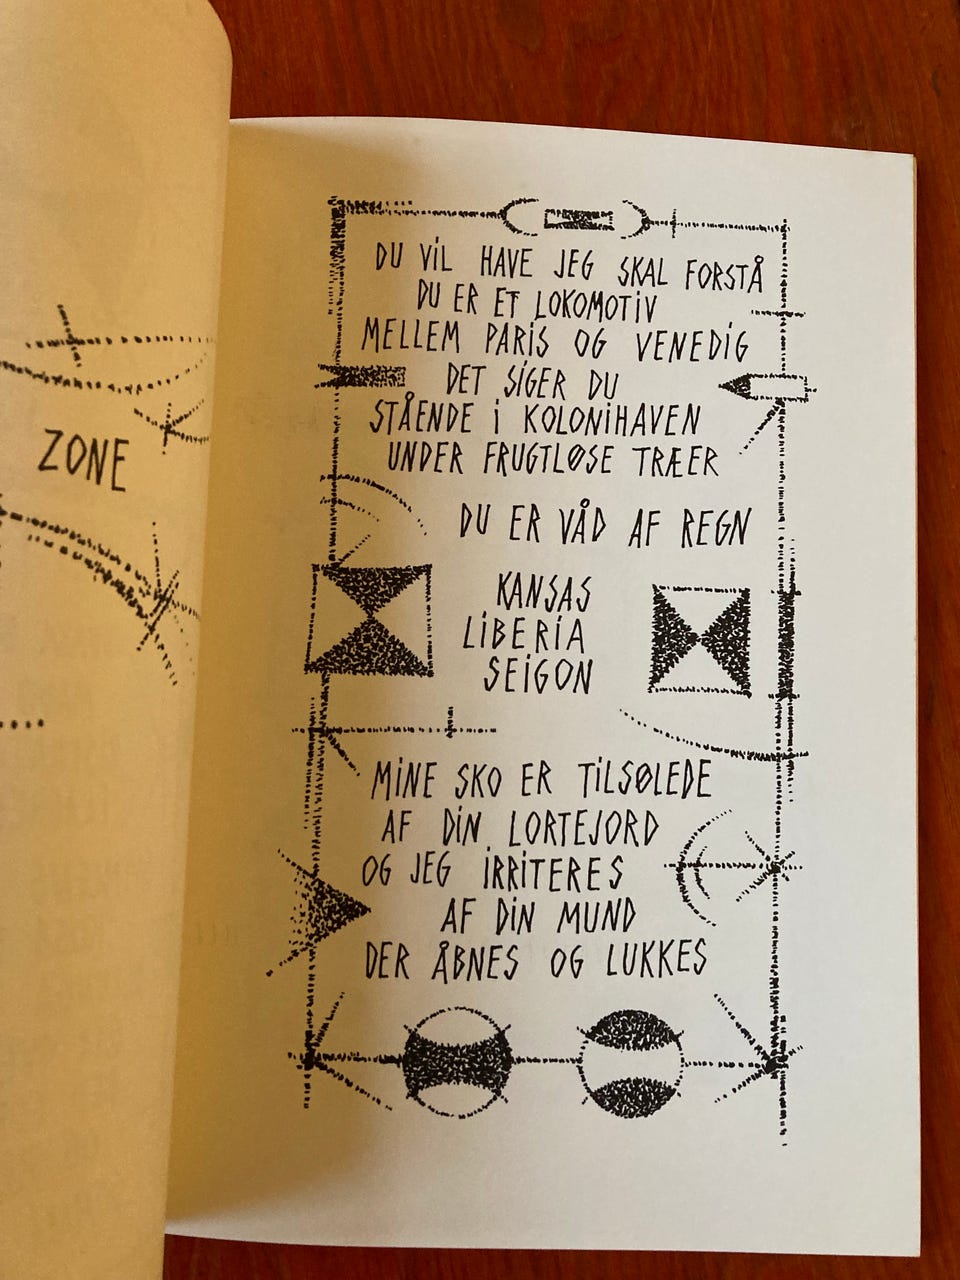 ZONE
DU ViL HAVE JEG SKAL FORSTÅ
DU ER ET LOKOMOTiV
MELLEM PARiS OG VENEDiG
DET SiGER DU
STÅENDE i KOLONiHAVEN
UNDER FRUGTLØSE TRÆER
DU ER VÅD AF REGN
KANSAS
LiBERiA
SEiGON
MiNE SKO ER TiLSØLEDE
AF DiN LORTEJORD
OG JEG iRRiTERES
AF DiN MUND
DER ÅBNES OG LUKKES